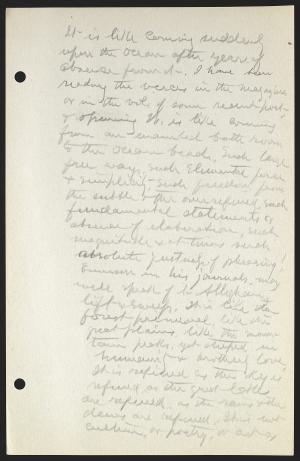 It is like coming suddenly
upon the Ocean after years of
absence from it. I have been
reading the verses in the magazines
or in the vol. of some recent poet
& opening it is like coming
from an enamled bath room
to the ocean beach, such large
free way, such elemental force
& simplicity - such freedom from
the subtle & the over refined, such
fundamental statements &
absence of elaboration, such
magnitude & at times such
absolute justness of phrasing!
Emerson in his journals may
well speak of its Alleghany
lift & sweep. It is like the
forest primeval, like the
great plains, like the moun-
tain peaks, yet steeped in
humanity & brotherly love.
It is refined as the sky is
refined, as the great lakes
are refined, as the rains & the
dews are refined. It is not
culture, or poetry, or art as